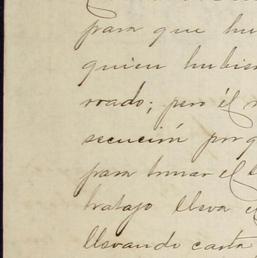 para que hu
quien hubies
roado; pero él n
secución porq
para tomar el l
trabajo lleva e
llevando carta